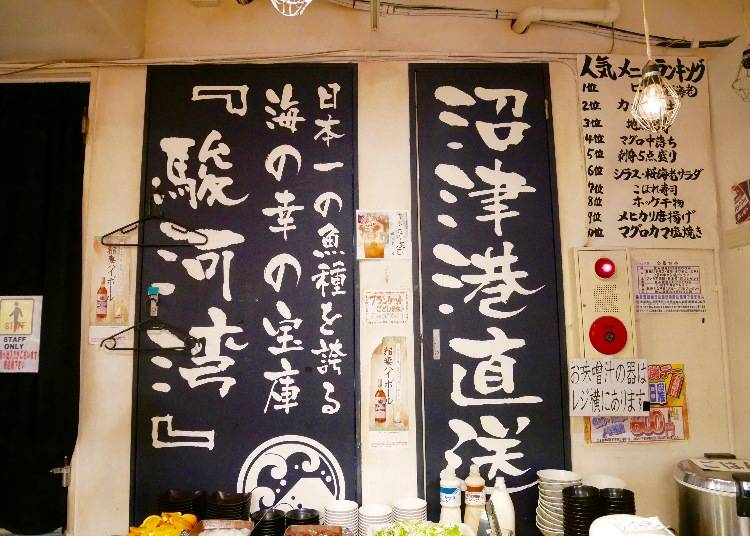 日本一の魚種を誇る
海の幸の宝庫
『駿河湾』
沼津港直送
人気メニューランキング
1位
2位
3位
4位 マグロ中落ち
5位 刺身5点盛り
6位 シラス・桜海老サラダ
7位 こぼれ寿司
8位 ホッケ干物
9位 メヒカリ唐揚げ
10位 マグロカマ塩焼き
お味噌汁の器は
レジ横にあります
稲妻ハイボール
稲妻ハイボール
ブランケット
STAFF
STAFF
ONLY